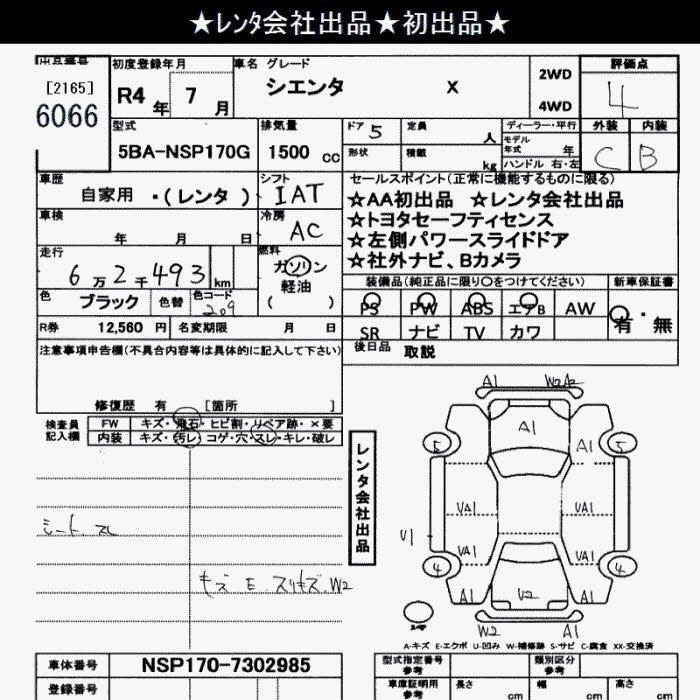 ★レンタ会社出品★初出品★
出品番号 初度登録年月 車名 グレード 評価点
[2165] R4年 7月 シエンタ X 2WD 4
6066 4WD 外装 内装
型式 排気量 ドア 5 定員 人 ディーラー・平行 C B
モデル年式 年
5BA-NSP170G 1500 cc 形状 積載 kg ハンドル 右・左
車歴 シフト セールスポイント(正常に機能するものに限る)
自家用 ・(レンタ ) IAT ★AA初出品 ★レンタ会社出品
車検 冷房 ★トヨタセーフティセンス
年 月 日 AC ★左側パワースライドドア
走行 燃料 ★社外ナビ、Bカメラ
6万2千493 km ガソリン
軽油
( )
装備品(純正品に限り○をつけてください) 新車保証書
色 ブラック 色替 色コード 209 PS PW ABS エアB AW 有・無
R券 12,560 円 名変期限 月 日 SR ナビ TV カワ
注意事項申告欄(不具合内容等は具体的に記入して下さい) 後日品 取説
修復歴 有 [箇所 ]
検査員記入欄 FW キズ・飛石・ヒビ割・リペア跡・×要
内装 キズ・汚レ・コゲ・穴・スレ・キレ・破レ
レンタ会社出品
A1 W2 A2
A1
5 5
VA1 VA1
U1 VA1 VA1
4 4
A1 V2 A1
W2 A1
シート スレ
キズ E スリキズ.W2
A-キズ E-エクボ U-凹み W-補修跡 S-サビ C-腐食 XX-交換済
車体番号 NSP170-7302985 型式指定番号 参考 類別区分 参考
登録番号 車庫証明用 参考 長さ cm 幅 cm 高さ cm